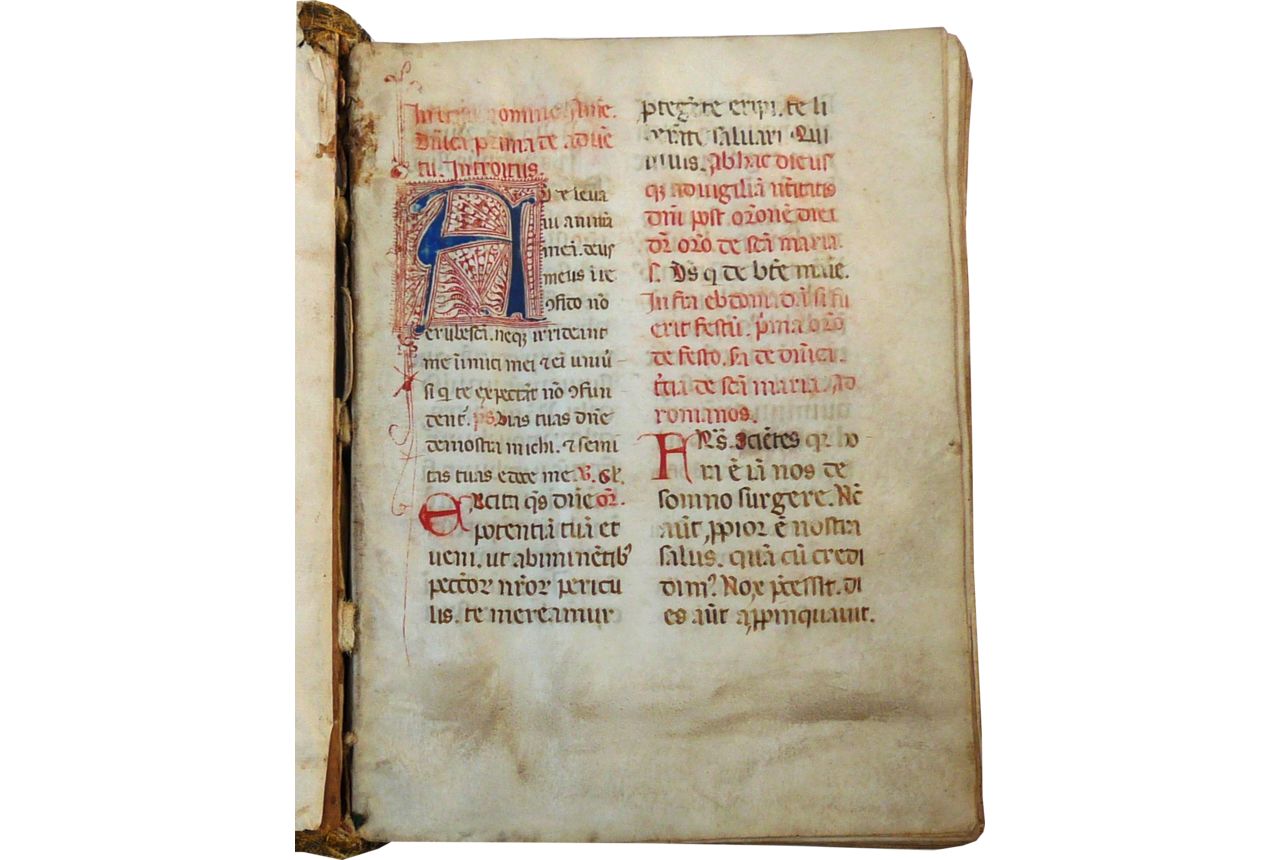 In nomine domini. Ame.
Dn̄ica prima de aduē
tu. Introitus.
Ad te leua
ui animā
meā. deus
meus ī te
ꝯfido nō
erubescā. neqꝫ irrideant
me īimici mei ⁊ eī uniū
si q̄ te expectāt nō ꝯfun
dent̄. p̄s. Uias tuas dn̄e
demōstra michi. ⁊ semi
tas tuas edoce me. V. Gl̄.
Excita q̄s dn̄e or̄.
potentiā tuā et
ueni. ut ab iminētibꝰ
peccc̄oꝝ nr̄oꝝ pericu
lis. te mereamur
ꝓtegēte eripi. te li
berāte saluari Qui
uiuis. Ab hac die usꝫ
qꝫ ad uigiliā natiuitatis
dn̄i post or̄onē diei
dr̄ or̄o de sc̄a maria.
s. Ds̄ q̄ de bt̄e marie.
Infra ebdom̄. dā si fu
erit festū. p̄ma or̄o
de festo. sā de dn̄ica.
t̄cia de sc̄a maria. Ad
romanos.
Fr̄s. Sciētes qꝛ ho
ra ē iā nos de
somno surgere. Nc̄
aūt ꝓpior ē nostra
salus. quā cū credi
dimꝰ. Nox p̄cessit. di
es aūt apꝓpinquauit.